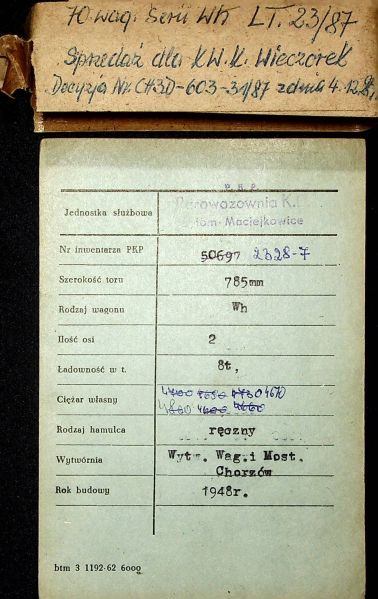 70 wag. Serii Wh LT. 23/87
Sprzedaż dla KW.K. Wieczorek
Decyzja Nr. CH3D-603-31/87 z dnia 4.12.8
P.K.P.
Parowozownia K.I
Jednostka służbowa tom-Maciejkowice
Nr inwentarza PKP 50697 2328-7
Szerokość toru 785mm
Rodzaj wagonu Wh
Ilość osi 2
Ładowność w t. 8t,
Ciężar własny 4670
Rodzaj hamulca ręczny
Wytwórnia Wytw. Wag.i Most.
Chorzów
Rok budowy 1948r.
btm 3 1192-62 6000